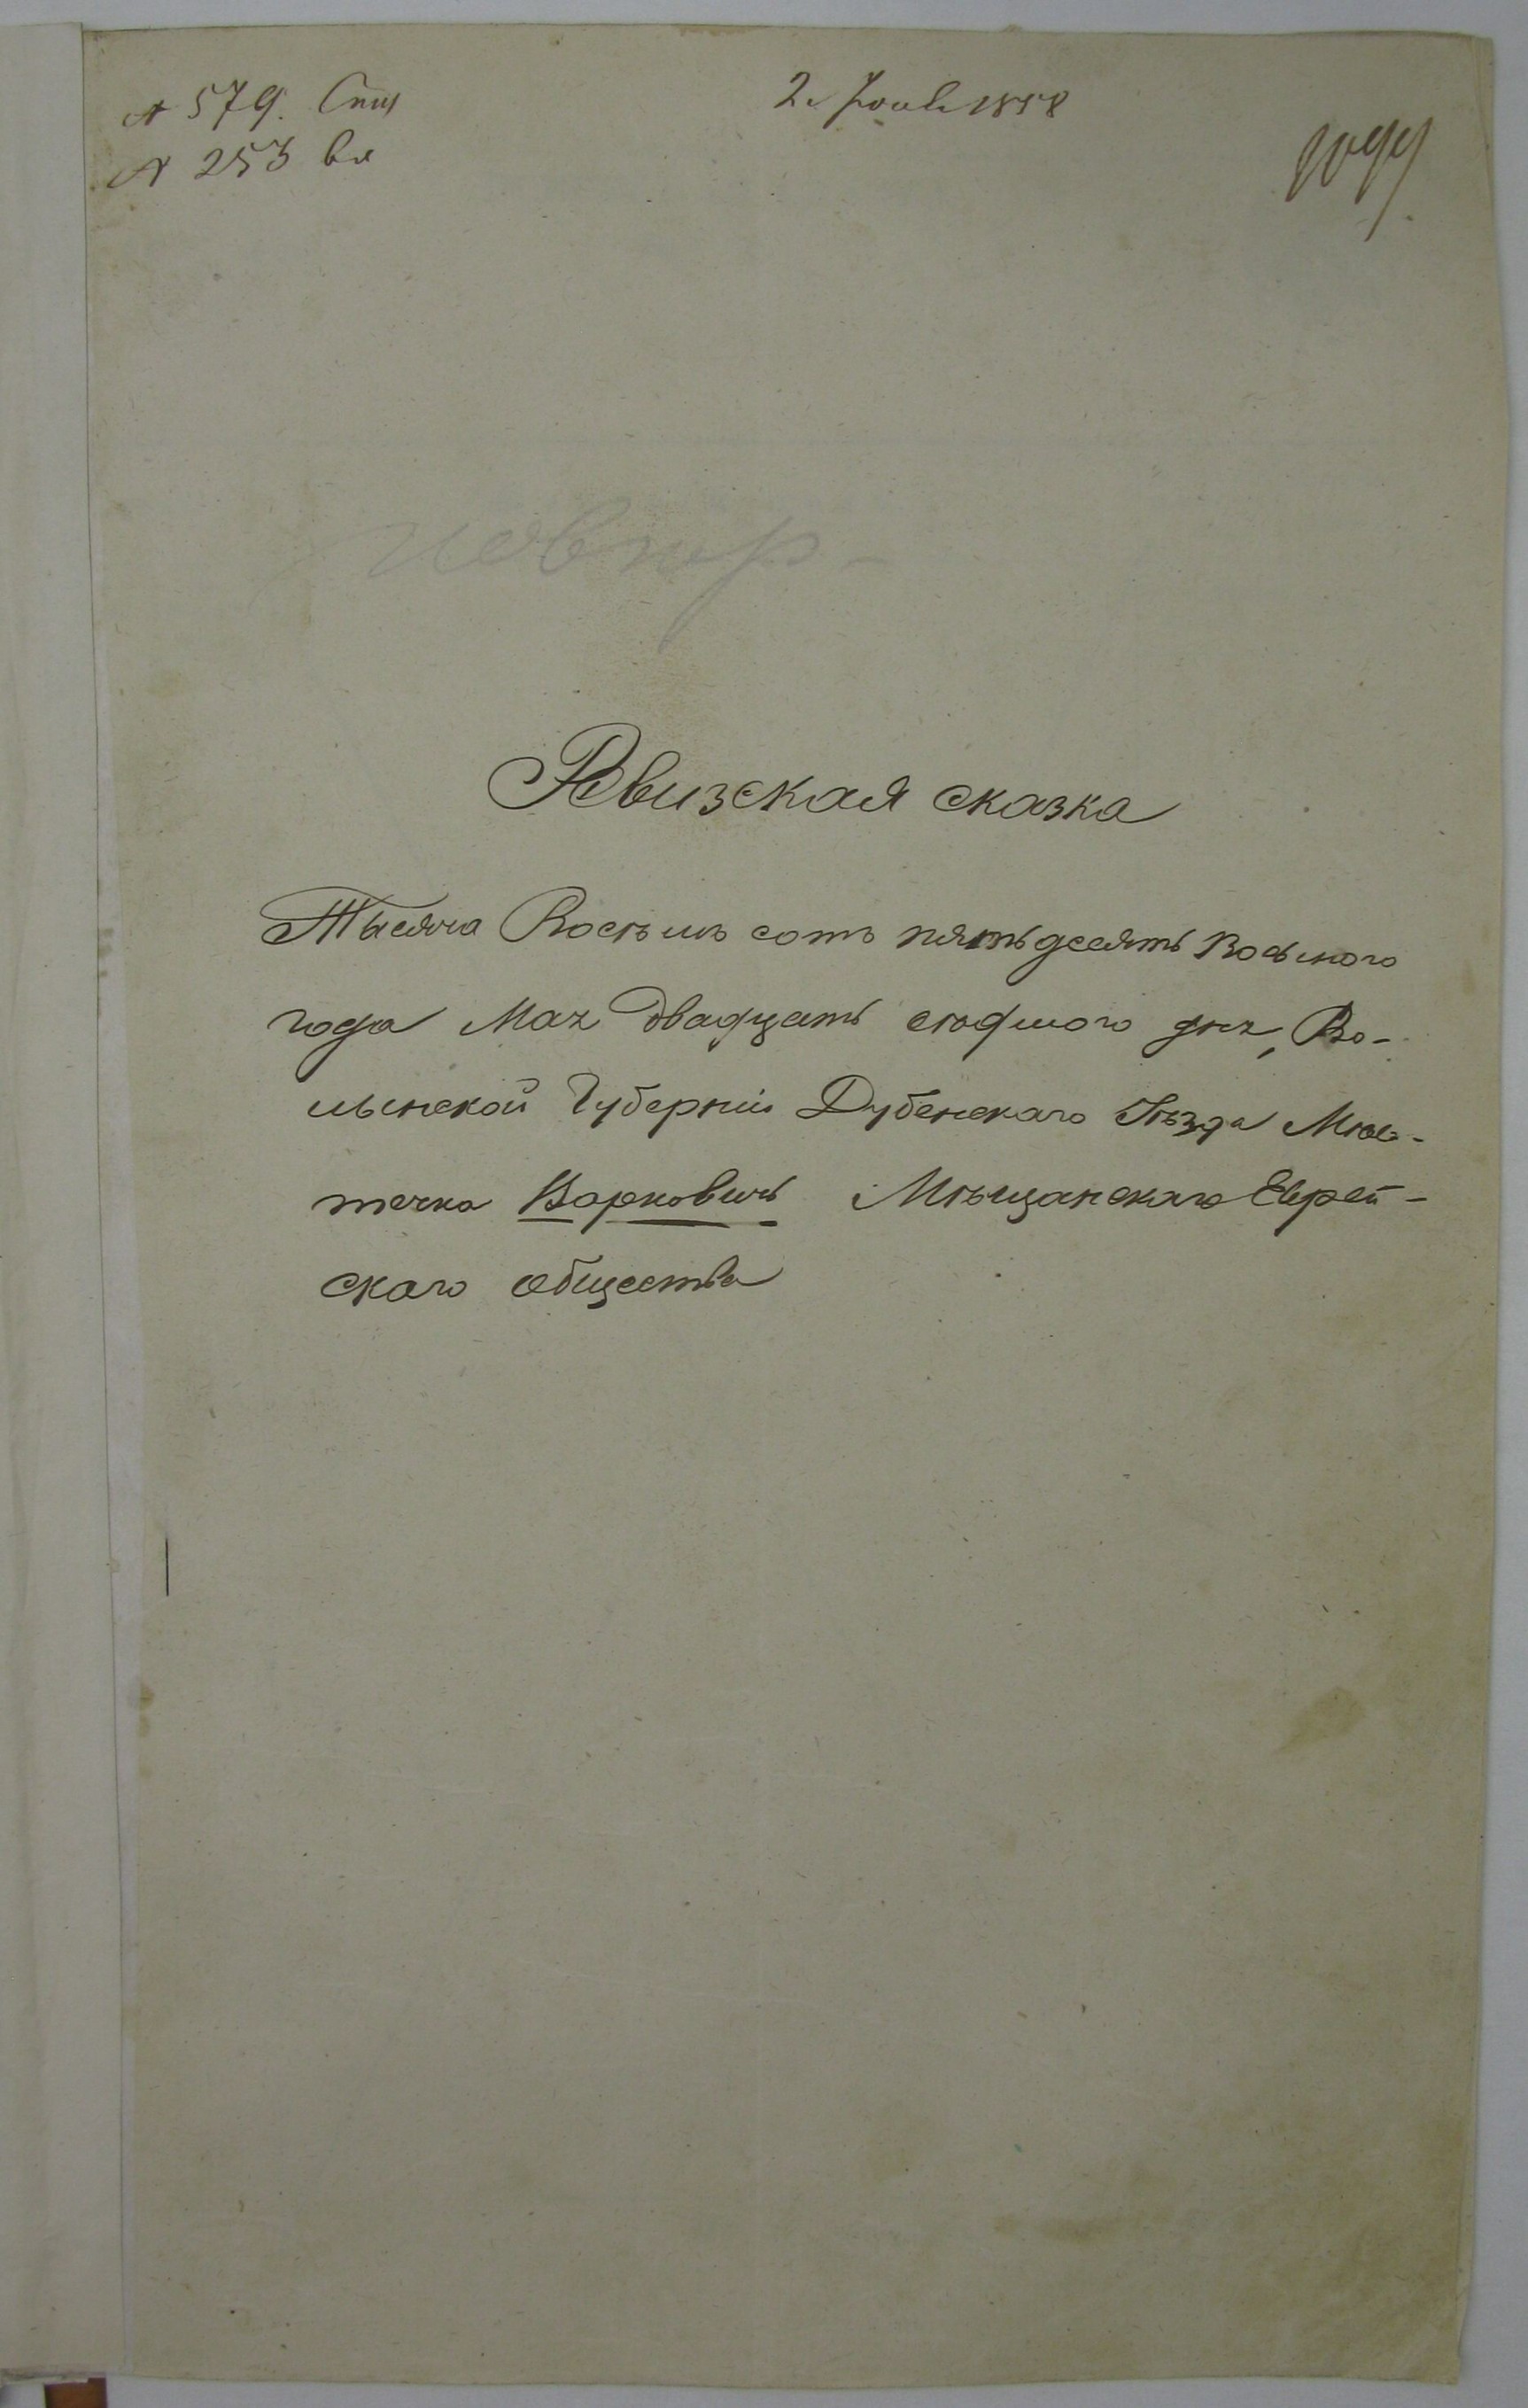 № 579.
№ 253
2. Іюня 1858
Ревизская сказка
Тысяча Восѣмь сотъ пятьдесятъ Восьмого
года Мая двадцать седмого дня, Во-
лынской Губерніи Дубенскаго Уѣзда Мѣс-
течка Варковичъ Мѣщанскаго Еврей-
скаго общества